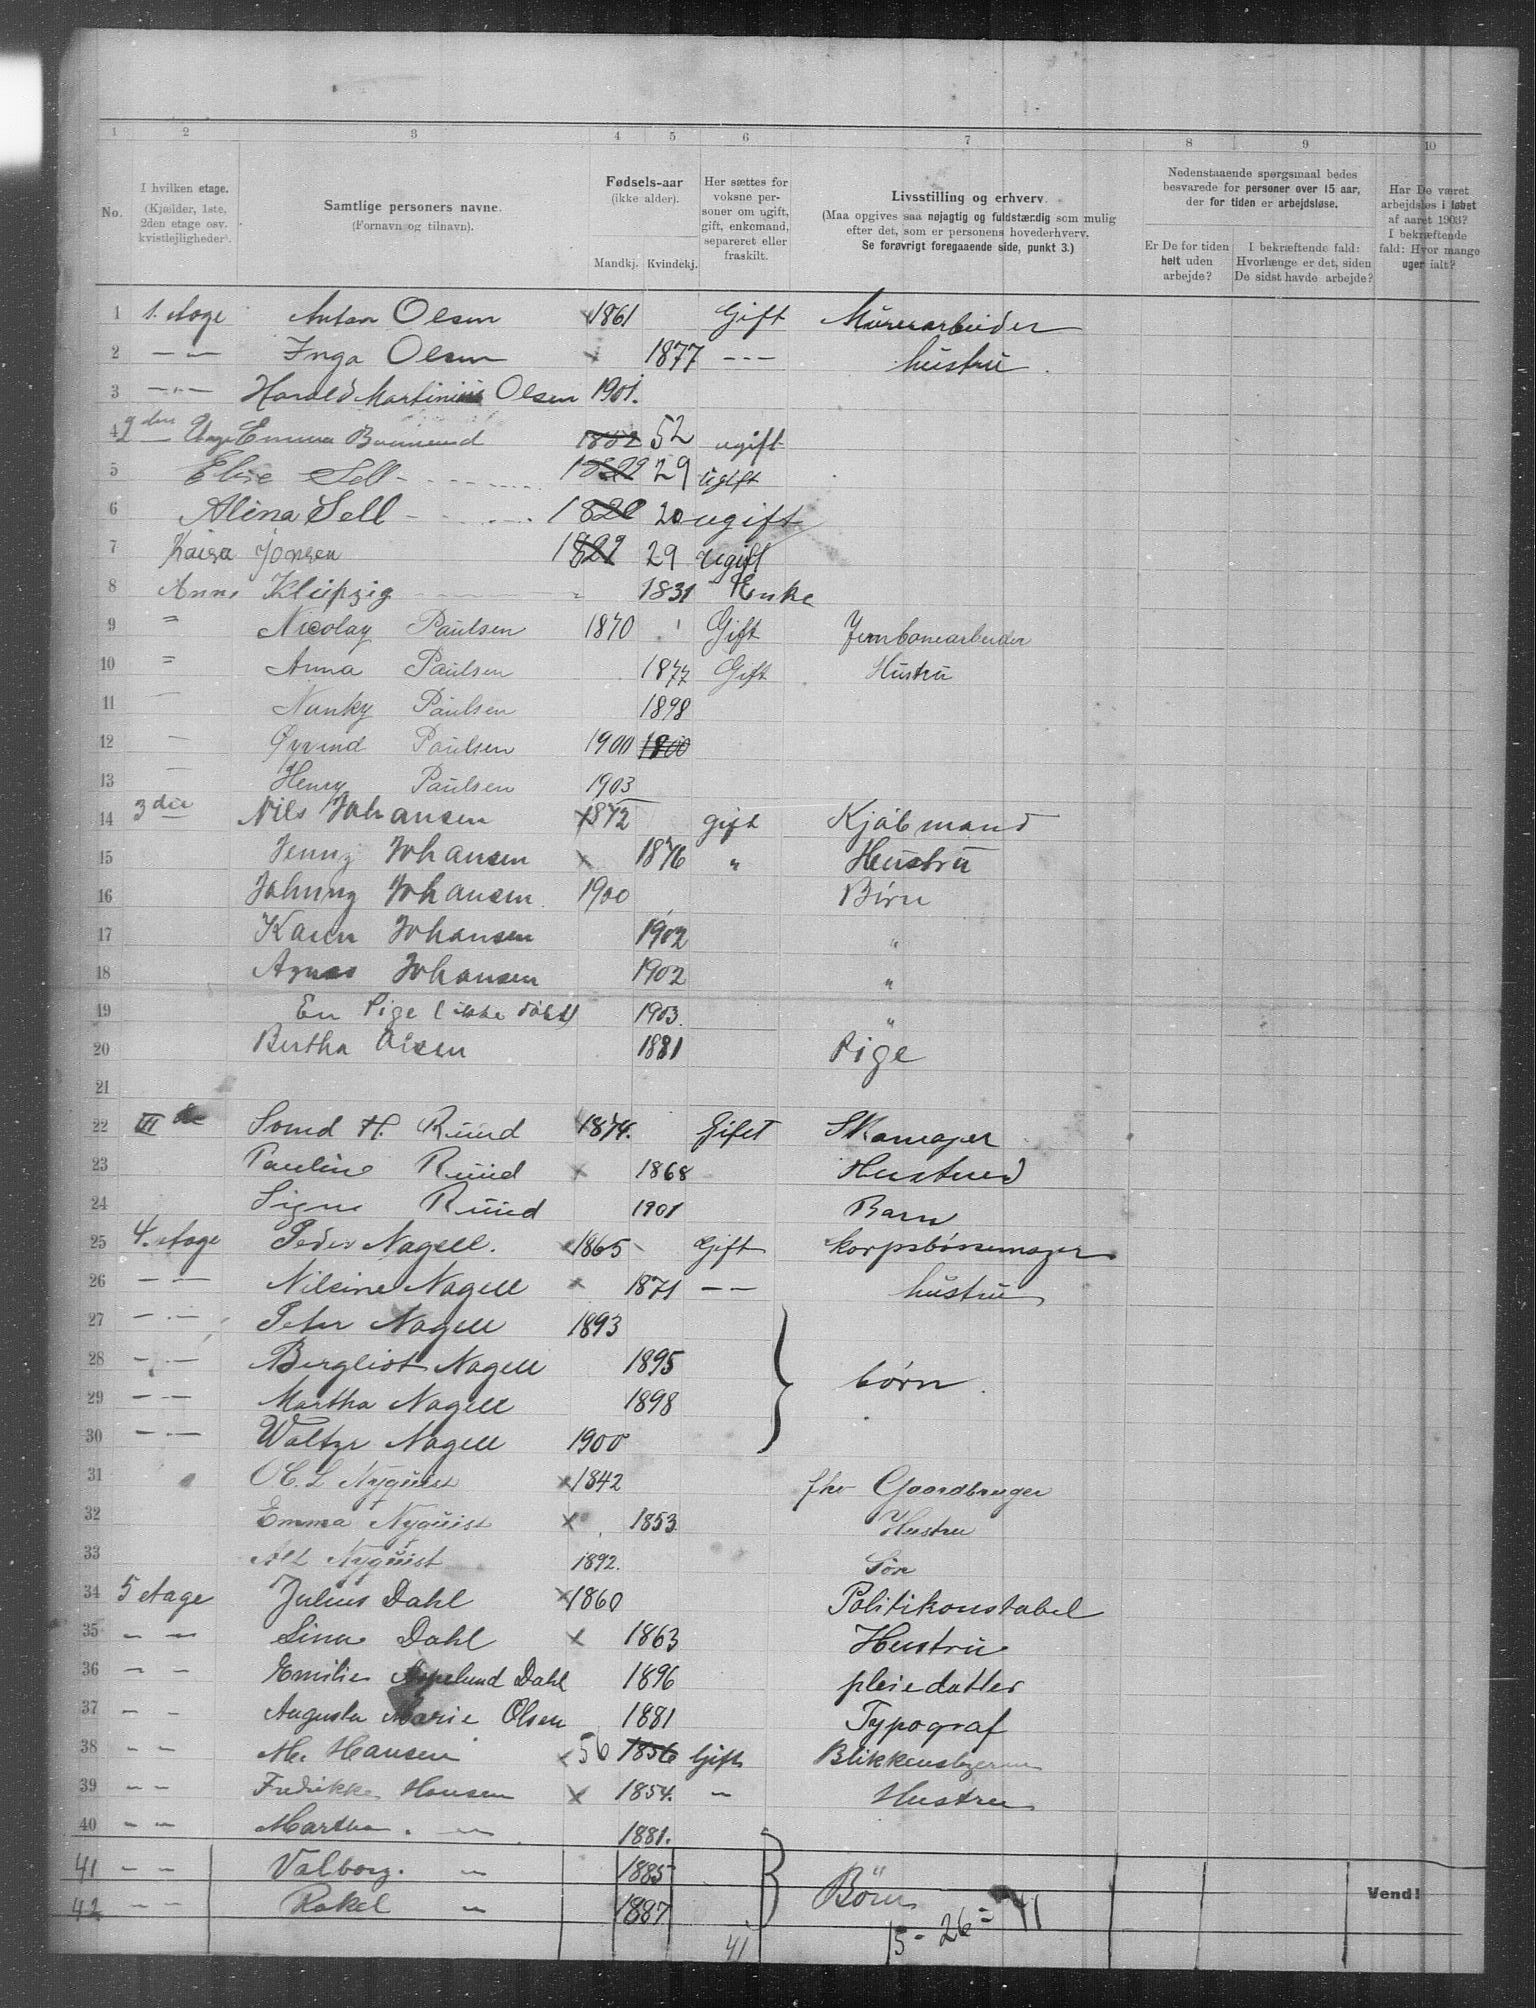 1 2 3 4 5 6 7 8 9 10
No.
I hvilken etage.
(Kjælder, 1ste,
2den etage osv.
kvistleiligheder).
Samtlige personers navne.
(Fornavn og tilnavn).
Fødsels-aar
(ikke alder).
Mandkj. Kvindekj.
Her sættes for
voksne per-
soner om ugift,
gift, enkemand,
separeret eller
fraskilt.
Livsstilling og erhverv.
(Maa opgives saa nøjagtig og fuldstændig som mulig
efter det, som er personens hovederhverv.
Se forøvrigt foregaaende side, punkt 3.)
Nedenstaaende spørgsmaal bedes
besvarede for personer over 15 aar,
der for tiden er arbejdsløse.
Er De for tiden
helt uden
arbejde?
I bekræftende fald:
Hvorlænge er det, siden
De sidst havde arbejde?
Har De været
arbejdsløs i løbet
af aaret 1903?
I bekræftende
fald: Hvor mange
uger ialt?
1 1. Etage Anton Olsen x 1861 Gift Murerarbeider
2 — „ — Inga Olsen x 1877 - - - hustru
3 — „ — Harald Martinius Olsen 1901.
4 2den Etage Emma 1852 52 ugift
5 Elise Sell 1829 29 ugift
6 Alina Sell 1820 20 ugift
7 Kaisa Jonsen 1829 29 ugift
8 Anne Kleipzig 1831 Enke
9 " Nicolay Paulsen 1870 Gift Jernbanearbeider
10 " Anna Paulsen 1877 Gift Hustru
11 Nanky Paulsen 1898
12 Øyvind Paulsen 1900 1800
13 Henry Paulsen 1903
14 3die Nils Johansen x 1872 gift Kjøbmand
15 Jenny Johansen x 1876 „ Hustru
16 Johnny Johansen 1900 Børn
17 Karen Johansen 1902 „
18 Agnes Johansen 1902 „
19 En Pige (ikke døbt) 1903. „
20 Bertha Olsen 1881 Pige
21
22 III de H. Ruud x 1874. Gift Skomager
23 Pauline Ruud x 1868 Hustrued
24 Signe Ruud 1901 Barn
25 4. Etage Peder Nagell. x 1865 Gift korpsbørsemager
26 — — Nilsine Nagell x 1871 — — hustru
27 — . — Peter Nagell 1893
28 — . — Bergliot Nagell 1895 børn.
29 — . — Martha Nagell 1898
30 — . — Walter Nagell 1900
31 L Nyquist x 1842 fhv Gaardbruger
32 Emma Nyquist x 1853 Hustru
33 Alf Nyquist 1892. Søn
34 5 Etage Julius Dahl x 1860 Politikonstabel
35 — — Lina Dahl x 1863 Hustru
36 — — Emilie Dahl 1896 pleiedatter
37 — — Augusta Marie Olsen 1881 Typograf
38 — — M. Hansen x 56 1856 Gift
39 — — Fredrikke Hansen x 1854. — Hustru
40 — — Martha. — „ — 1881.
41 — — Valborg. — „ — 1885 Børn
42 — Rakel — „ — 1887
Vend!
41 15 - 26 = 41